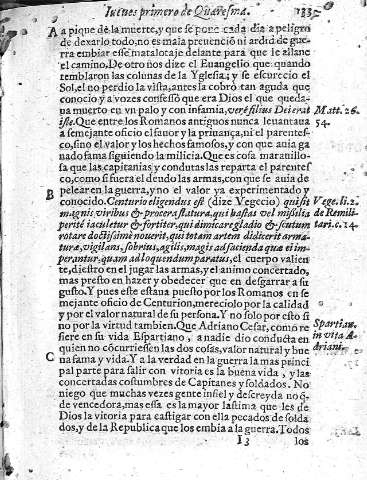 Iueues primero de Quaresma. 133
A a pique de la muerte, y que se pone cada dia a peligro
de dexarlo todo, no es mala preuenciõ ni ardid de gue
rra embiar esse matalotaje delante para que le allane
el camino. De otro nos dize el Euangelio que quando
temblaron las colunas de la Yglesia; y se escurecio el
Sol, el no perdio la vista, antes la cobró tan aguda que
conocio y a vozes confessò que era Dios el que queda-
ua muerto en vn palo y con infamia, verè filius Dei erat
iste. Que entre los Romanos antiguos nunca leuantaua
a semejante oficio el fauor y la priuança, ni el parentes-
co, sino el valor y los hechos famosos, y con que auia ga
nado fama siguiendo la milicia. Que es cosa marauillo-
sa que las capitanias y condutas las reparta el parentes
co, como si fuera el deudo las armas, con que se auia de
B pelear en la guerra, y no el valor ya experimentado y
conocido. Centurio eligendus est (dize Vegecio) qui sit
magnis viribus & procera statura, qui hastas vel missilia
peritè iaculetur & fortiter, qui dimicar gladio & scutum
rotare doctissimè nouerit, qui totam artem didicerit arma-
turæ, vigilans, sobrius, agilis, magis ad facienda quæ ei im-
perantur, quam ad loquendum paratus, el cuerpo valien
te, diestro en el jugar las armas, y el animo concertado,
mas presto en hazer y obedecer que en desgarrar a su
gusto. Y pues este estaua puesto por los Romanos en se
mejante oficio de Centurion, merecïolo por la calidad
y por el valor natural de su persona. Y no solo por esto si
no por la virtud tambien. Que Adriano Cesar, como re
fiere en su vida Espartiano, a nadie dio conducta en
quien no cõcurriessen las dos cosas, valor natural y bue
C na fama y vida. Y a la verdad en la guerra la mas princi
pal parte para salir con vitoria es la buena vida, y las
concertadas costumbres de Capitanes y soldados. No
niego que muchas vezes gente infiel y descreyda no q̃-
de vencedora, mas essa es la mayor lastima que les de
Dios la vitoria para castigar con ella pecados de solda
dos, y de la Republica que los embia a la guerra. Todos
I 3 los
Matt. 26.
54.
Vege. li. 2.
de Remili-
tari. c. 14.
Spartian.
in vita A-
driani.